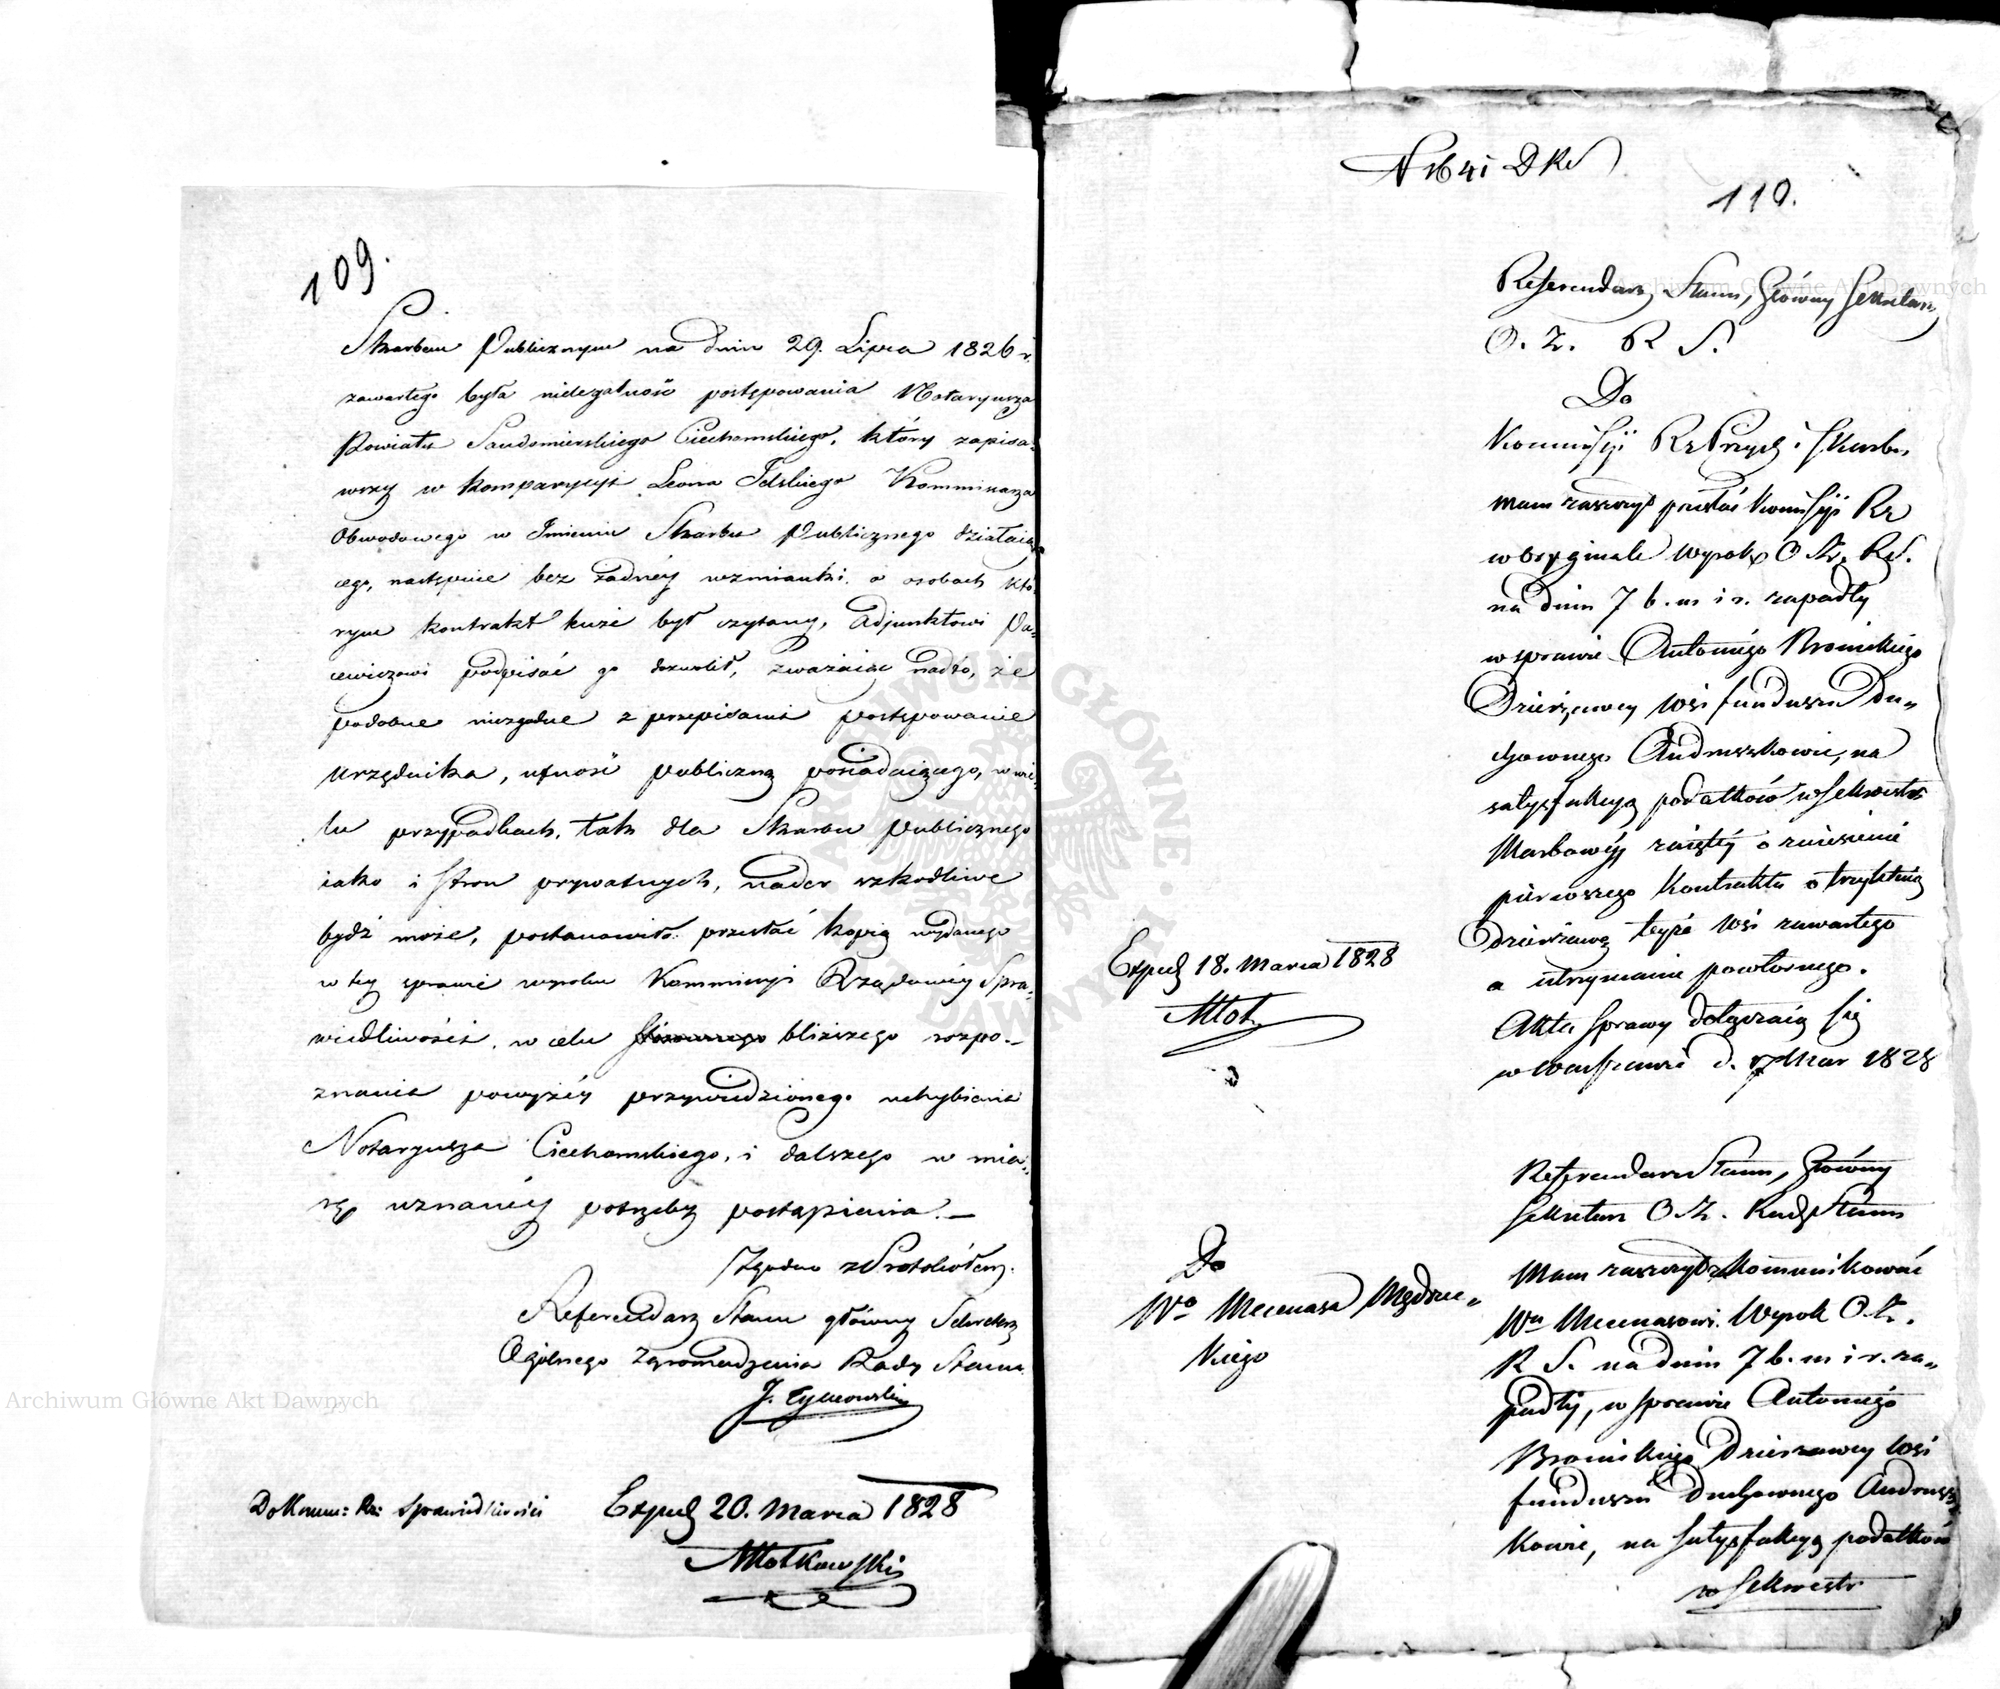 109.
Skarbem Publicznym na dniu 29. Lipca 1826 r.
zawartego była nielegalność postępowania Notaryusza
Powiatu Sandomierskiego Ciechomskiego, który zapisa-
wszy w komparycyi Leona Jelskiego Kommissarza
Obwodowego w Imieniu Skarbu Publicznego działaią-
cego, następnie bez żadnéy wzmianki o osobach któ-
rym kontrakt tenże był czytany, Adjunktowi Pa-
cewiczowi podpisać go dozwolił, zważaiąc nadto, że
podobne niezgodne z przepisami postępowanie
Urzędnika, ufność publiczną posiadaiącego, w wie-
lu przypadkach, tak dla Skarbu Publicznego
iako i stron prywatnych, nader szkodliwe
bydź może, postanowiło przesłać kopią wydanego
w tey sprawie wyroku Kommissyi Rządowéy Spra-
wiedliwości, w celu bliższego rozpo-
znania powyżéy przywiedzionego uchybienia
Notaryusza Ciechomskiego, i dalszego w mia-
rę uznanéy potrzeby postąpienia. —
Zgodno z Protokółem.
Referendarz Stanu główny Sekretarz
Ogólnego Zgromadzenia Rady Stanu
J. Tymowski
Do Komm: Rz: Sprawiedliwości
Exped 20. Marca 1828
Młotkowski
N 1641 DKS
110.
Referendarz Stanu, Główny Sekretarz
O. Z. R S.
Do
Kommissyi Rz Przych i Skarbu
Mam zaszczyt przesłać Kommissyi Rz
w Oryginale Wyrok O Z. RS.
na dniu 7 b. m i r. zapadły
w sprawie Antoniego Bronickiego
Dzierżawcy Wsi funduszu Du-
chownego Andruszkowic, na
satysfakcyą podatków w Sekwestr
Skarbowy zaiętéy o zniesienie
pierwszego Kontraktu o trzyletnią
dzierżawę teyże Wsi zawartego
a utrzymanie powtórnego.
Akta Sprawy dołączaią się
w Warszawie d. Mar 1828
Exped 18. Marca 1828
Młot
Referendarz Stanu, Główny
Sekretarz O Z. Rady Stanu
Do
Wo Mecenasa Mędrzec-
kiego
Mam zaszczyt zkomunikować
Wu Mecenasowi Wyrok O Z.
R S. na dniu 7 b. m i r. za-
padły, w sprawie Antoniego
Bronickiego Dzierżawcy Wsi
funduszu Duchownego Andrusz
kowic, na satysfakcyą podatków
w Sekwestr
Archiwum Główne Akt Dawnych
Archiwum Główne Akt Dawnych
ARCHIWUM GŁÓWNE AKT DAWNYCH